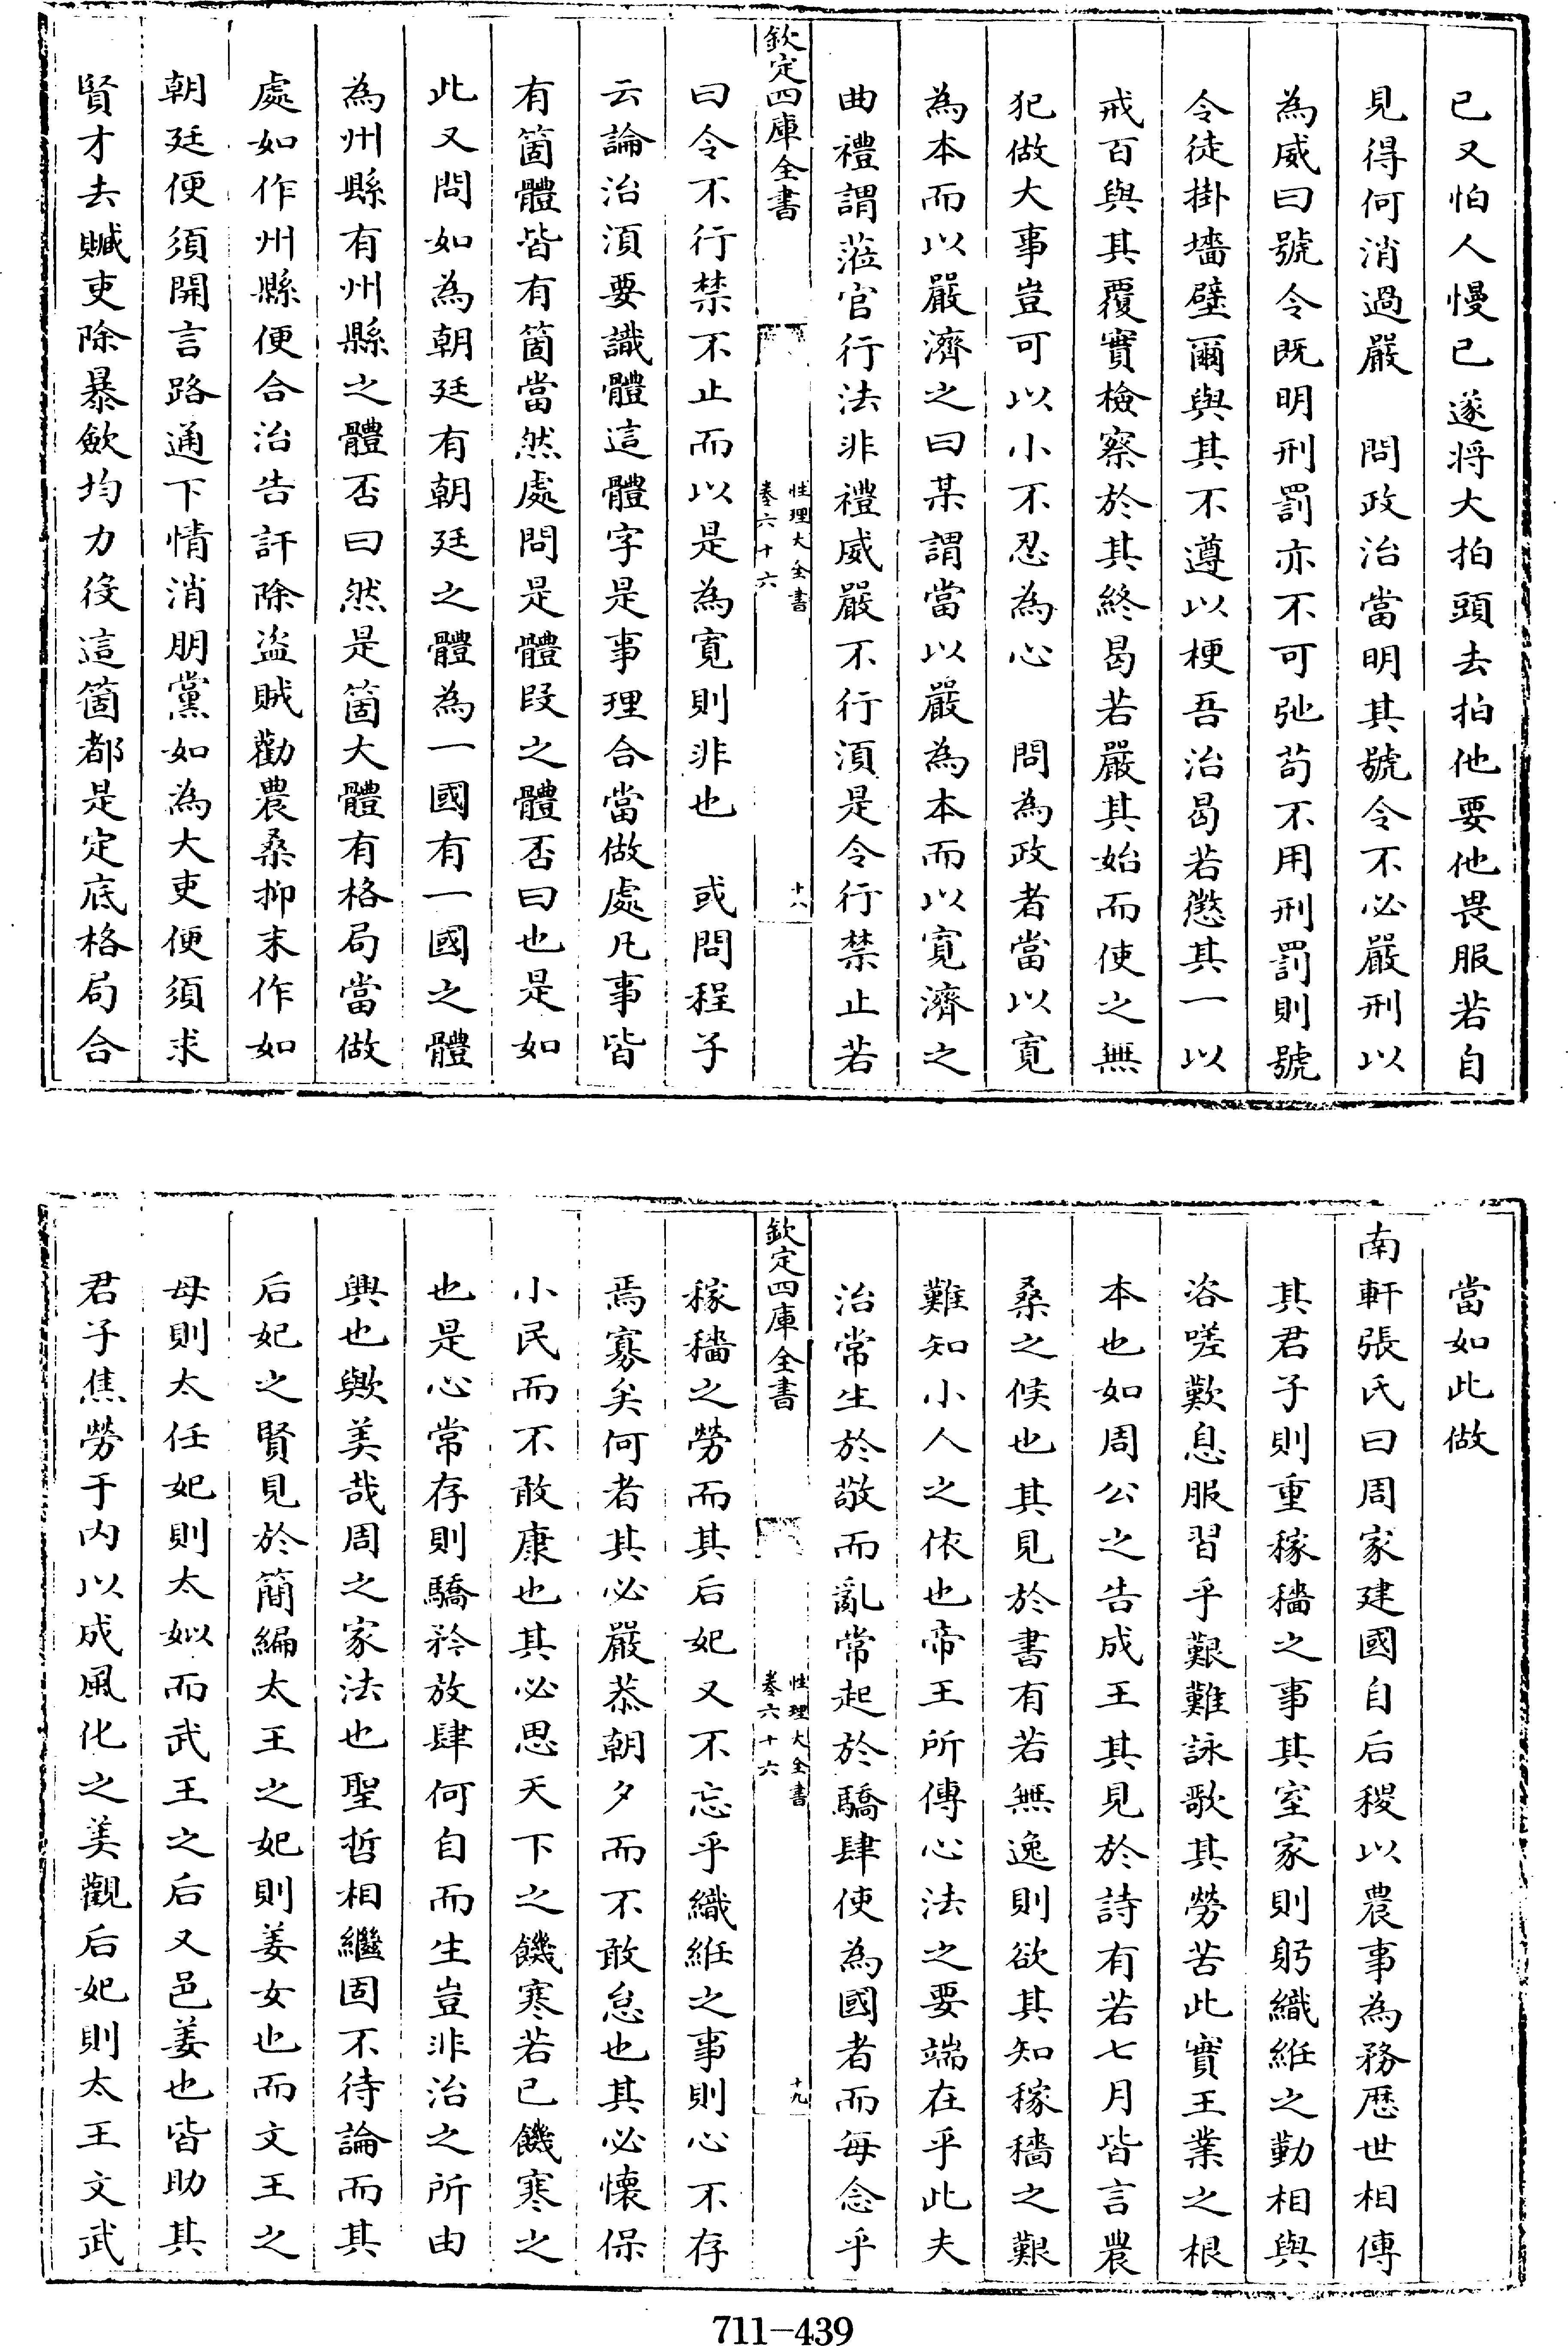 已又怕人慢已遂将大拍頭去拍他要他畏服若自
見得何消過嚴　問政治當明其號令不必嚴刑以
為威曰號令既明刑罰亦不可弛茍不用刑罰則號
令徒掛墻壁爾與其不遵以梗吾治曷若懲其一以
戒百與其覆實檢察於其終曷若嚴其始而使之無
犯做大事豈可以小不忍為心　問為政者當以寛
為本而以嚴濟之曰某謂當以嚴為本而以寛濟之
曲禮謂蒞官行法非禮威嚴不行須是令行禁止若
欽定四庫全書
性理大全書
卷六十六
十八
曰令不行禁不止而以是為寛則非也　或問程子
云論治須要識體這體字是事理合當做處凡事皆
有箇體皆有箇當然處問是體段之體否曰也是如
此又問如為朝廷有朝廷之體為一國有一國之體
為州縣有州縣之體否曰然是箇大體有格局當做
處如作州縣便合治告訐除盗賊勸農桑抑末作如
朝廷便須開言路通下情消朋黨如為大吏便須求
賢才去贓吏除暴歛均力役這箇都是定底格局合
當如此做
南軒張氏曰周家建國自后稷以農事為務歷世相傳
其君子則重稼穡之事其室家則躬織絍之勤相與
咨嗟歎息服習乎艱難詠歌其勞苦此實王業之根
本也如周公之告成王其見於詩有若七月皆言農
桑之候也其見於書有若無逸則欲其知稼穡之艱
難知小人之依也帝王所傳心法之要端在乎此夫
治常生於敬而亂常起於驕肆使為國者而每念乎
欽定四庫全書
性理大全書
卷六十六
十九
稼穡之勞而其后妃又不忘乎織絍之事則心不存
焉寡矣何者其必嚴恭朝夕而不敢怠也其必懷保
小民而不敢康也其必思天下之饑寒若已饑寒之
也是心常存則驕矜放肆何自而生豈非治之所由
興也歟美哉周之家法也聖哲相繼固不待論而其
后妃之賢見於簡編太王之妃則姜女也而文王之
母則太任妃則太姒而武王之后又邑姜也皆助其
君子焦勞于内以成風化之美觀后妃則太王文武
711-439